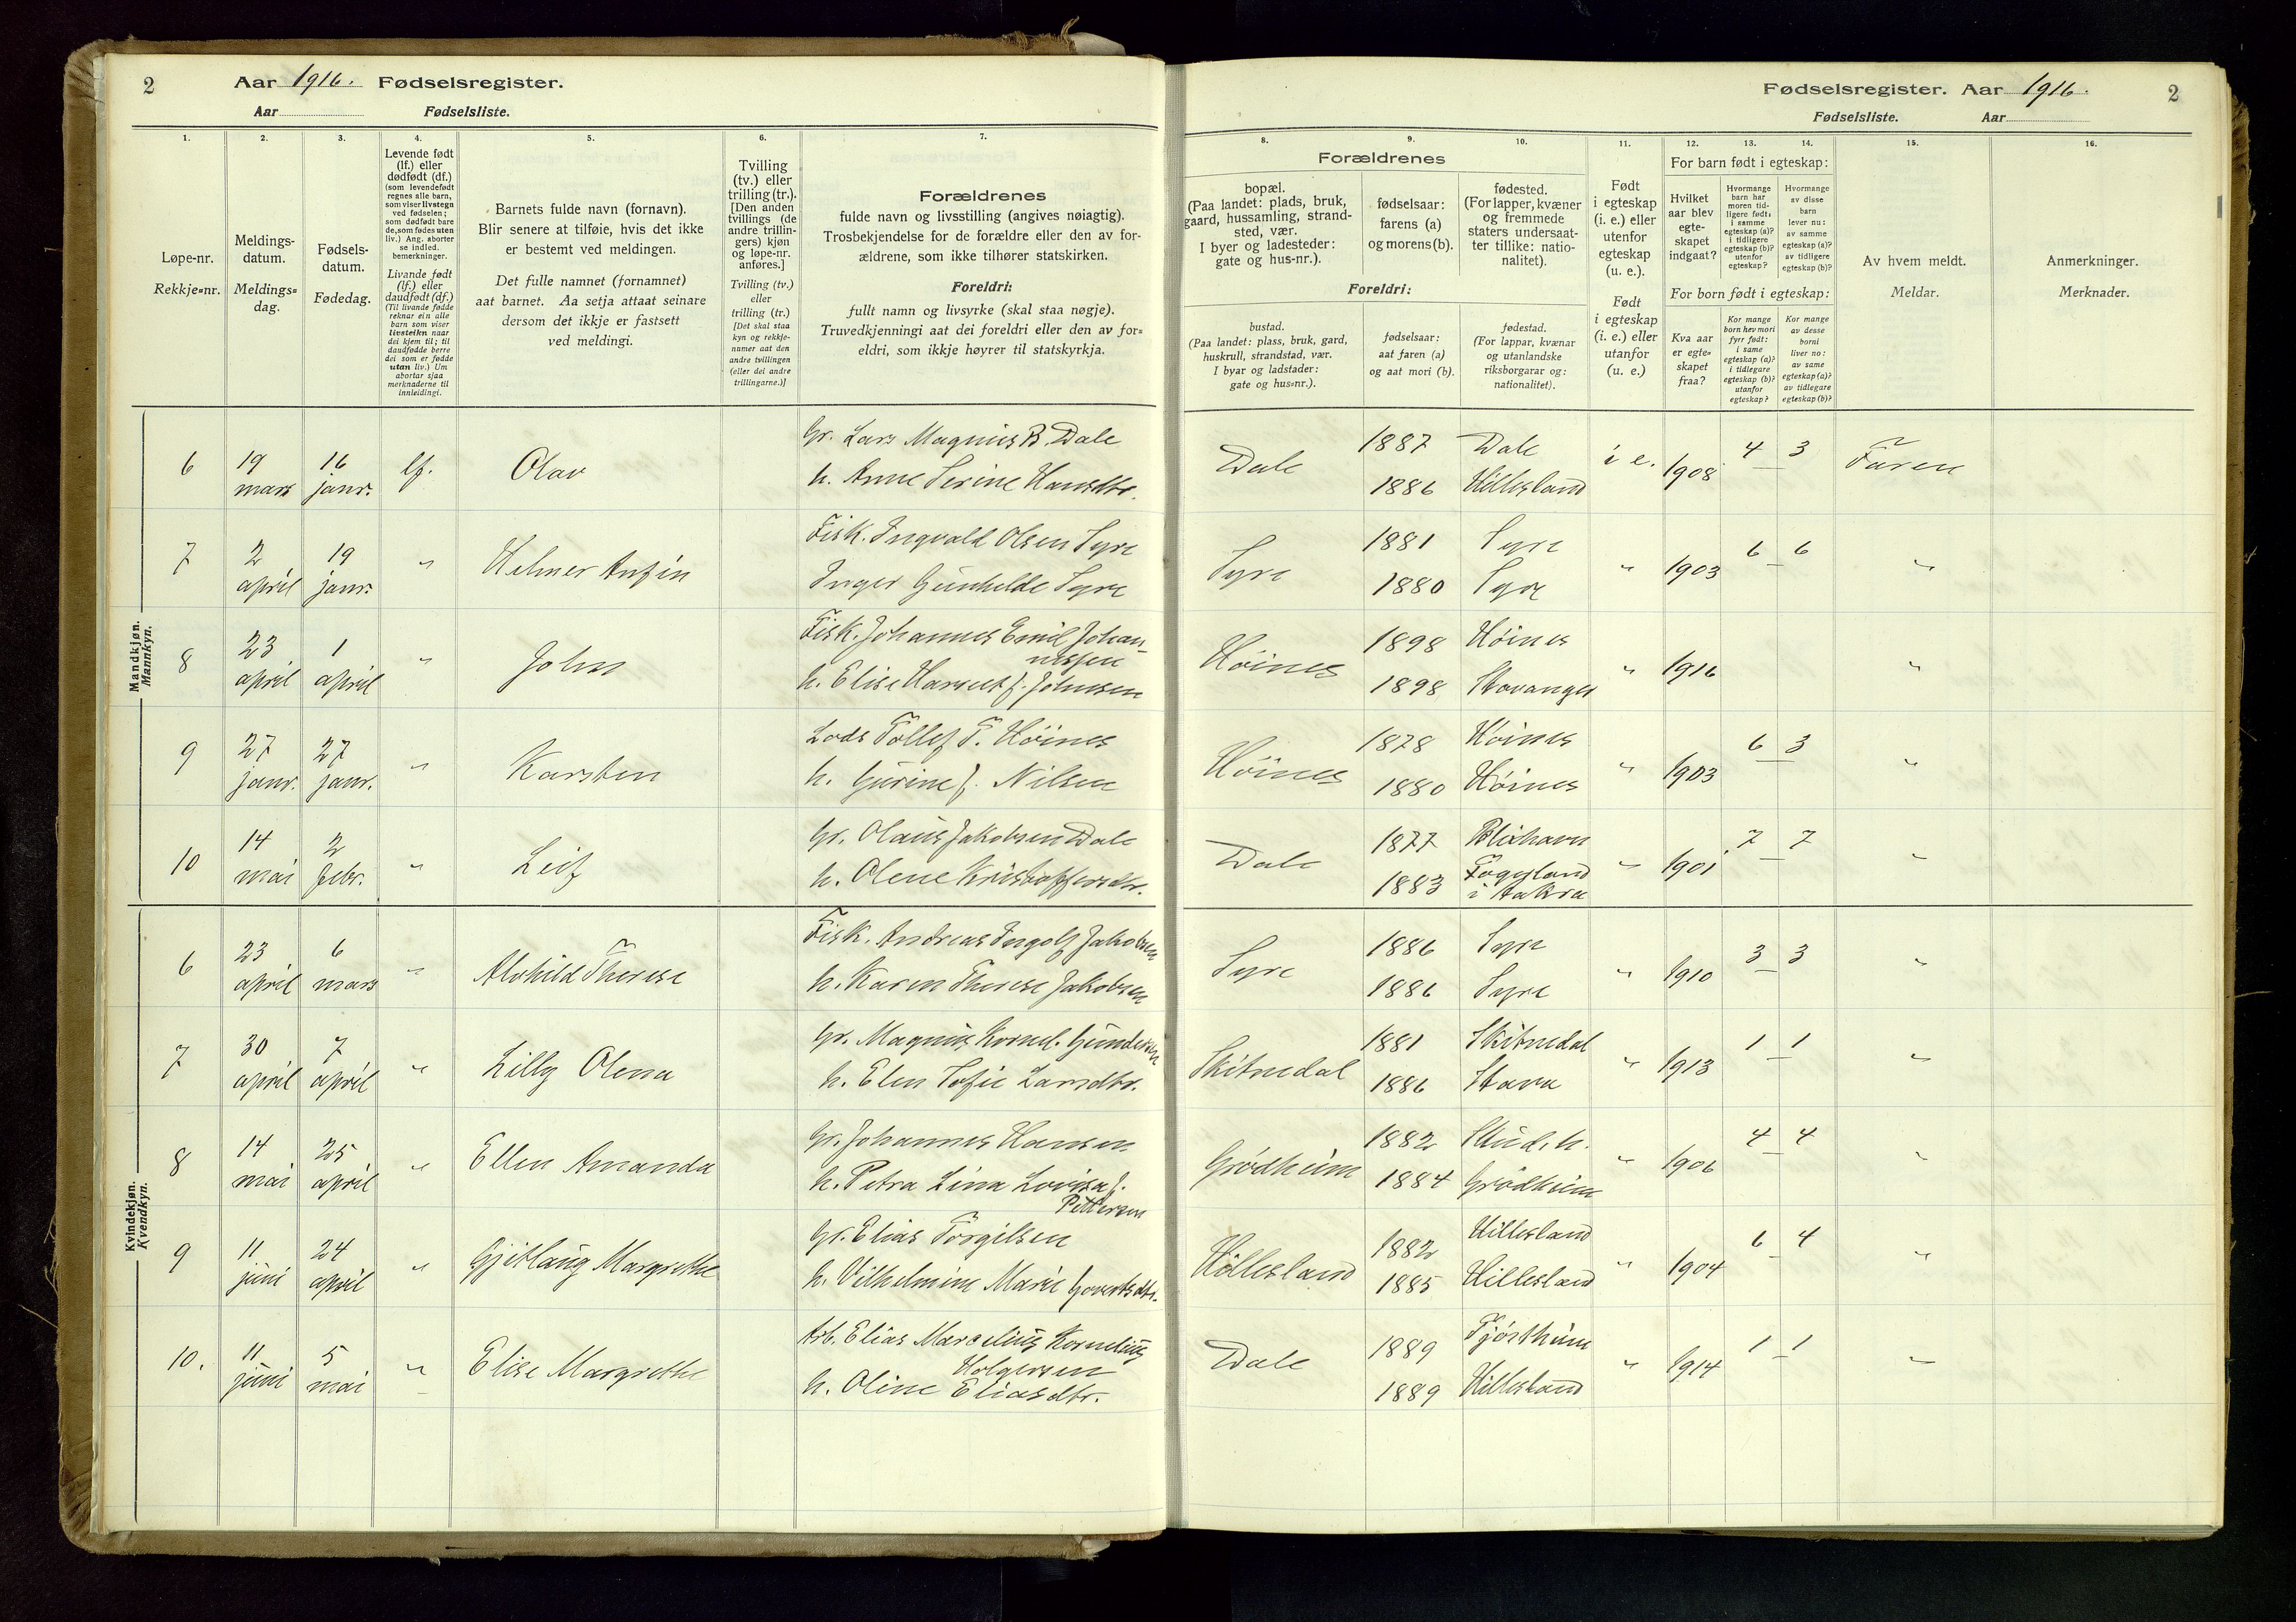 2 Aar 1916. Fødselsregister.
Aar Fødselsliste.
1. 2. 3. 4. 5. 6. 7.
Løpe-nr.
Rekkje=nr.
Meldings-
datum.
Meldings=
dag.
Fødsels-
datum.
Fødedag.
Levende født
(lf.) eller
dødfødt (df.)
(som levendefødt
regnes alle barn,
som viser livstegn
ved fødselen;
som dødfødt bare
de, som fødes uten
liv.) Ang. aborter
se indled.
bemerkninger.
Livande født
(lf.) eller
daudfødt (df.)
(Til livande fødde
reknar ein alle
barn som viser
livsteikn naar
dei kjem til; til
daudfødde berre
dei som er fødde
utan liv.) Um
abortar sjaa
merknaderne til
innleidingi.
Barnets fulde navn (fornavn).
Blir senere at tilføie, hvis det ikke
er bestemt ved meldingen.
Det fulle namnet (fornamnet)
aat barnet. Aa setja attaat seinare
dersom det ikkje er fastsett
ved meldingi.
Tvilling
(tv.) eller
trilling (tr.).
[Den anden
tvillings (de
andre trillin-
gers) kjøn
og løpe-nr.
anføres.]
Tvilling (tv.)
eller
trilling (tr.)
[Det skal staa
kyn og rekkje-
numer aat den
andre tvillingen
(eller dei andre
trillingarne.)]
Forældrenes
fulde navn og livsstilling (angives nøiagtig).
Trosbekjendelse for de forældre eller den av for-
ældrene, som ikke tilhører statskirken.
Foreldri:
fullt namn og livsyrke (skal staa nøgje).
Truvedkjenningi aat dei foreldri eller den av for=
eldri, som ikkje høyrer til statskyrkja.
Mandkjøn.
Mannkyn.
6 19 mars 16 janr. lf. Olav
Gr. Lars Magnus B. Dale
h. Anne Serine Hansdtr.
7 2 april 19 janr. " Helmer Anfin
Fisk. Ingvald Olsen Syre
Inger Gunhilde Syre
8 23 april 1 april " John
Fisk. Johannes Emil Johan-
nessen
h. Elise Harriet f. Johnsen
9 27 janr. 27 janr. " Karsten
Lods Tollef T. Høines
h. Gurine f. Nilsen
10 14 mai 2 febr. " Leif
Gr. Olaus Jakobsen Dale
h. Olene Kristoffersdtr.
Kvindekjøn.
Kvendkyn.
6 23 april 6 mars " Alvhild Therese
Fisk. Andreas Ingolf Jakobsen
h. Karen Therese Jakobsen
7 30 april 7 april " Lilly Olena
Gr. Magnus Kornel. Gundersen
h. Elen Sofie Larsdtr.
8 14 mai 25 april " Ellen Amanda
Gr. Johannes Hansen
h. Petra Lina Lovisa f.
Pettersen
9 11 juni 24 april " Gjetlaug Margrethe
Gr. Elias Torgilsen
h. Vilhelmine Marie Govertsdtr.
10. 11 juni 5 mai " Elise Margrethe
Arb. Elias Marcelius Kornelius
Holgersen
h. Oline Eliasdtr.
Fødselsregister. Aar 1916. 2
Fødselsliste. Aar
8. 9. 10. 11. 12. 13. 14. 15. 16.
Forældrenes
bopæl.
(Paa landet: plads, bruk,
gaard, hussamling, strand-
sted, vær.
I byer og ladesteder:
gate og hus-nr.).
fødselsaar:
farens (a)
og morens (b).
fødested.
(For lapper, kvæner
og fremmede
staters undersaat-
ter tillike: natio-
nalitet).
Foreldri:
bustad.
(Paa landet: plass, bruk, gard,
huskrull, strandstad, vær.
I byar og ladstader:
gate og hus=nr.).
fødselsaar:
aat faren (a)
og aat mori (b).
fødestad.
(For lappar, kvænar
og utanlandske
riksborgarar og:
nationalitet).
Født
i egteskap
(i. e.) eller
utenfor
egteskap
(u. e.).
Født
i egteskap
(i. e.) eller
utanfor
(u. e.)
For barn født i egteskap:
Hvilket
aar blev
egte-
skapet
indgaat?
Hvormange
barn har
moren tid-
ligere født:
i samme
egteskap (a)?
i tidligere
egteskap (b)?
utenfor
egteskap?
Hvormange
av disse
barn
lever nu:
av samme
egteskap (a)?
av tidligere
egteskap (b)?
For born født i egteskap:
Kva aar
er egte=
skapet
fraa?
Kor mange
born hev mori
fyrr født:
i same
egteskap (a)?
i tidlegare
egteskap (b)?
utanfor
egteskap?
Kor mange
av desse
borni
liver no:
av same
egteskap (a)?
av tidlegare
egteskap (b)?
Av hvem meldt.
Meldar.
Anmerkninger.
Merknader.
Dale 1887 Dale i e. 1908 4 3 Faren
1886 Hillesland
Syre 1881 Syre " 1903 6 6 "
1880 Syre
Høines 1898 Høines " 1916 "
1898 Stavanger
Høines 1878 Høines " 1903 6 3 "
1880 Høines
Dale 1877 Blixhavn " 1901 7 7 "
1883 Togesland
i Aakra
Syre 1886 Syre " 1910 3 3 "
1886 Syre
Skitnedal 1881 Skitnedal " 1913 1 1 "
1886 Stava
Grødheim 1882 Skud.h. " 1906 4 4 "
1884 Grødheim
Hillesland 1882 Hillesland " 1904 6 4 "
1885 Hillesland
Dale 1889 " 1914 1 1 "
1889 Hillesland